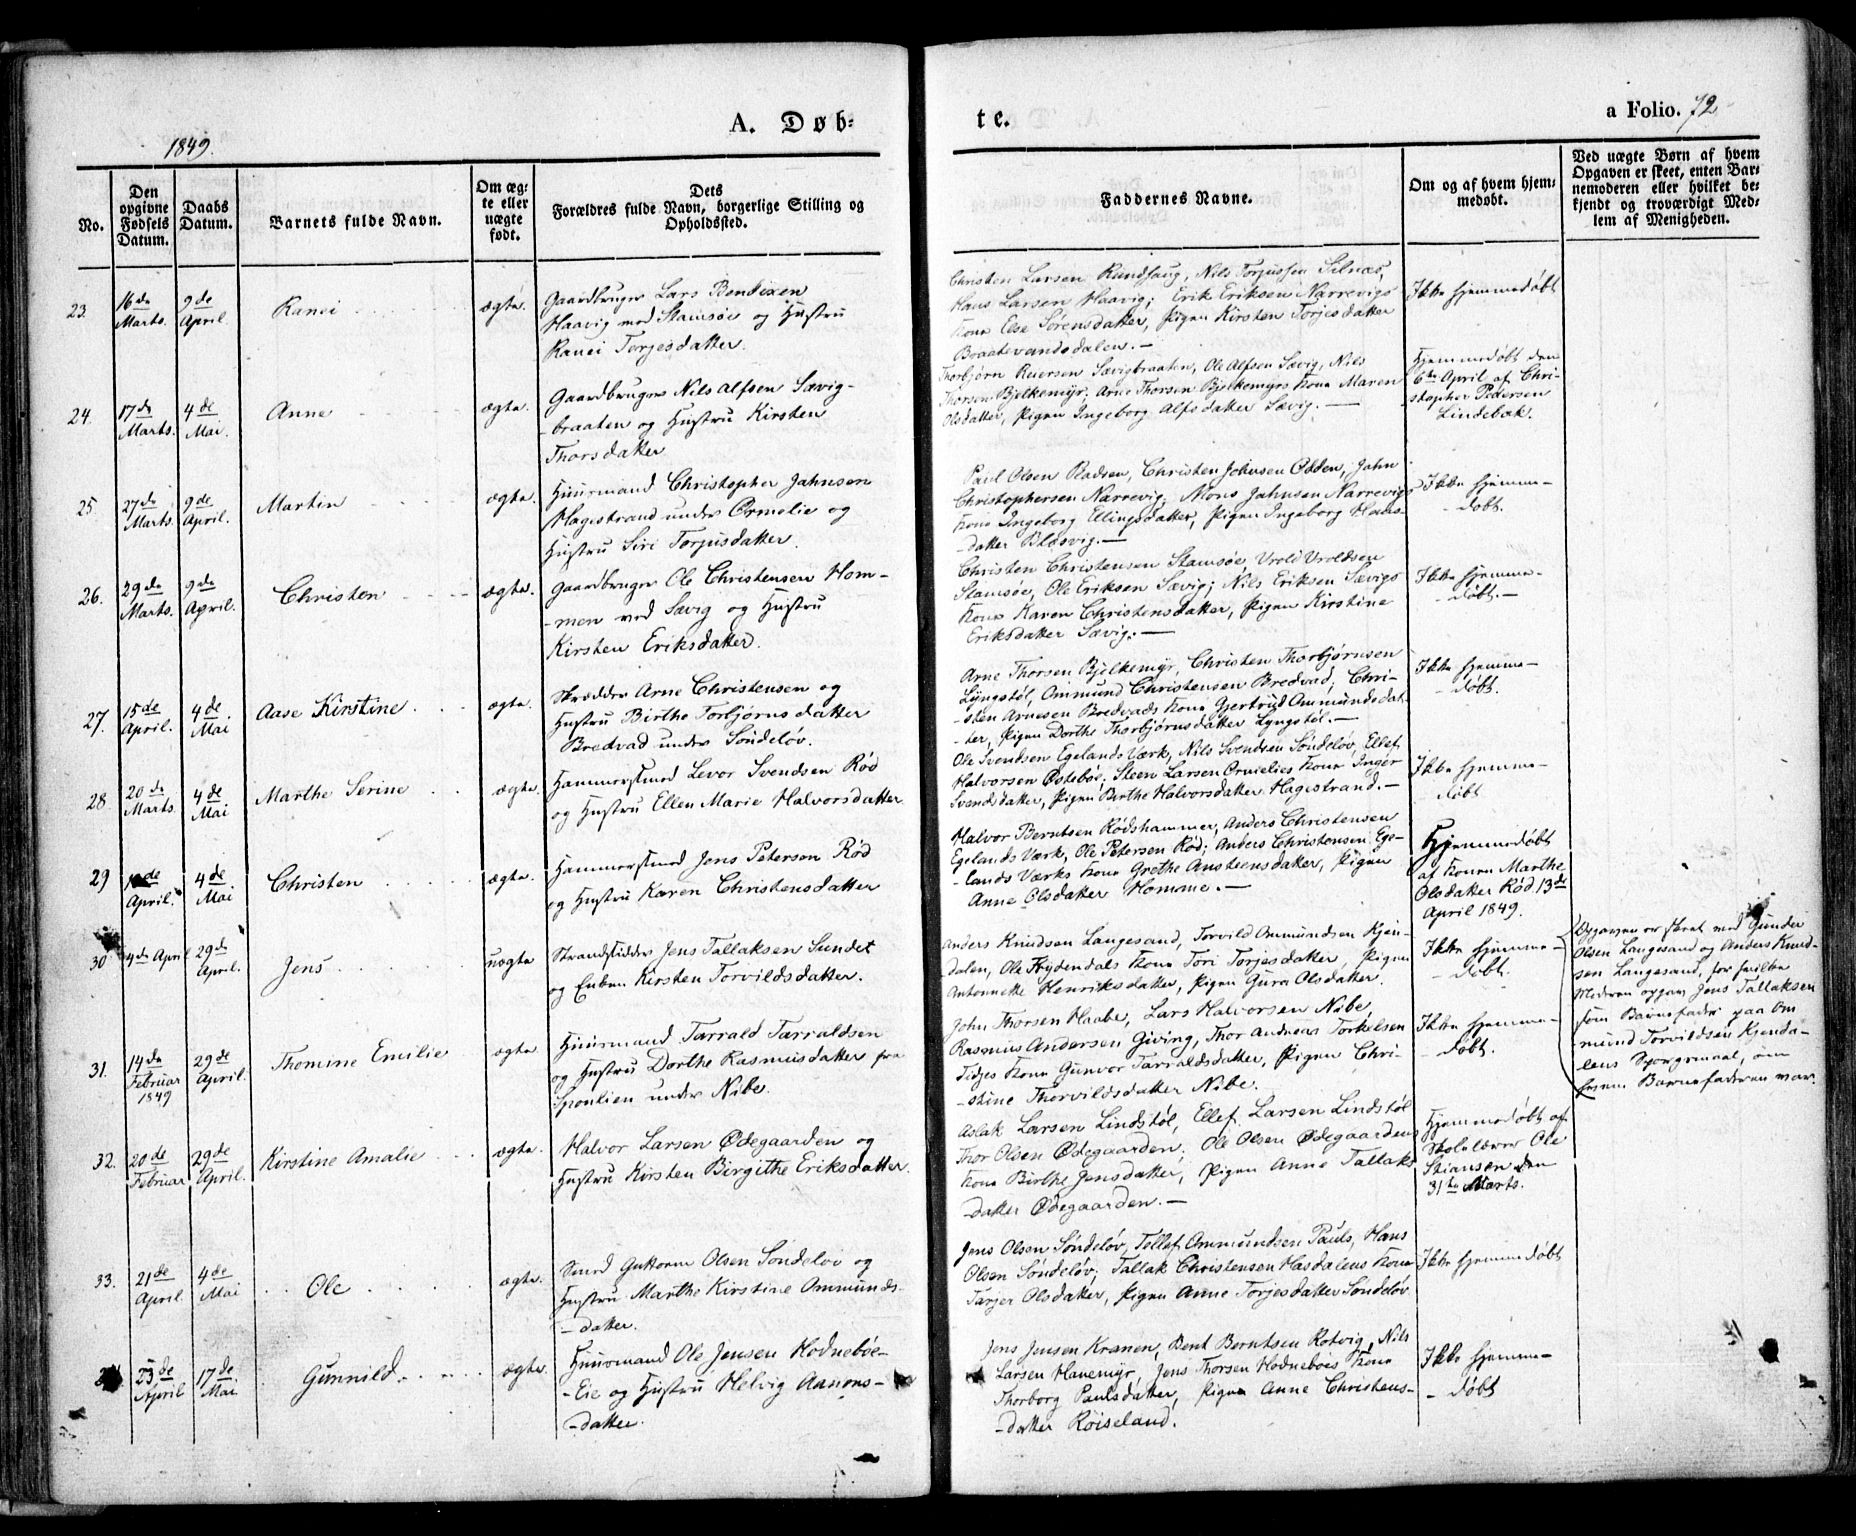 A. Døb-
te.
a Folio. 72
1849.
No.
Den opgivne Fødsels Datum.
Daabs Datum.
Barnets fulde Navn.
Om ægte eller uægte født.
Dets Forældres fulde Navn, borgerlige Stilling og Opholdssted.
Faddernes Navne.
Om og af hvem hjemmedøbt.
Ved uægte Børn af hvem Opgaven er skeet, enten Barnemoderen eller hvilket bekjendt og troværdigt Medlem af Menigheden.
23.
16de Marts.
9de April.
Ranei
ægte.
Gaardbruger Lars Bendixen
Haavig med Stamsøe og Hustru
Ranei Torjesdatter.
Christen Larsen Rundhaug, Nils Torjussen Silnæs,
Hans Larsen Haavig; Erik Eriksen Narrevigs
Kone Else Sørensdatter, Pigen Kirsten Torjesdatter
Braatevandsdalen.
Ikke hjemmedøbt
24.
17de Marts.
4de Mai.
Anne
ægte.
Gaardbruger Nils Alfsen Sævig-
-braaten og Hustru Kirsten
Thorsdatter
Thorbjørn Reiersen Sævigbraaten, Ole Alfsen Sævig, Nils
Thorsen Bjelkemyr, Arne Thorsen Bjelkemyrs Kone Maren
Olsdatter, Pigen Ingeborg Alfsdatter Sævig.
Hjemmedøbt den
6te April af Chri-
stopher Pedersen
Lindebæk.
25.
27de Marts.
9de April.
Martin
ægte.
Huusmand Christopher Jahnsen
Hagestrand under Ormelie og
Hustru Siri Torjusdatter.
Paul Olsen Bladsen, Christen Johnsen Odden, Jahn
Christophersen Narrevig; Mons Jahnsen Narrevigs
Kone Ingeborg Ellingsdatter, Pigen Ingeborg Hans-
-datter Blæsvig.
Ikke hjemme-
-døbt.
26.
29de Marts.
9de April.
Christen
ægte.
Gaardbruger Ole Christensen Hom-
-men ved Sævig og Hustru
Kirsten Eriksdatter.
Christen Christensen Stamsøe, Vrold Vroldsen
Stamsøe, Ole Eriksen Sævig; Nils Eriksen Sævigs
Kone Karen Christensdatter, Pigen Kirstine
Eriksdatter Sævig.
Ikke hjemme-
-døbt.
27.
15de April.
4de Mai.
Aase Kirstine
ægte.
Skrædder Arne Christensen og
Hustru Birthe Torbjørnsdatter
Bredvad under Søndeløv.
Arne Thorsen Bjelkemyr, Christen Thorbjørnsen
Lyngstøl, Ommund Christensen Bredvad, Chri-
-sten Arnesen Bredvads Kone Gjertrud Ommundsdat-
-ter, Pigen Dorthe Thorbjørnsdatter Lyngstøl.
Ikke hjemme-
-døbt.
28
20de Marts.
4de Mai
Marthe Serine
ægte.
Hammersmed Levor Svendsen Rød
og Hustru Ellen Marie Halvorsdatter
Ole Svendsen Egelands Værk, Nils Svendsen Søndeløv, Ellef
Halvorsen Østebøe; Steen Larsen Ormelies Kone Inger
Svendsdatter, Pigen Birthe Halvorsdatter Hagestrand.
Ikke hjemme-
døbt
29
April.
4de Mai.
Christen
ægte.
Hammersmed Jens Petersen Rød
og Hustru Karen Christensdatter
Halvor Berntsen Rødshammer, Anders Christensen
Egelands Værk, Ole Petersen Rød; Anders Christensen Ege-
-lands Værks Kone Grethe Anstensdatter, Pigen
Anne Olsdatter Homme.
Hjemmedøbt
af Konen Marthe
Olsdatter Rød 13de
April 1849.
30
4de April
29de April.
Jens
uægte
Strandsidder Jens Tallaksen Sundet
og Enken Kirsten Torvildsdatter.
Anders Knudsen Langesand, Torvild Ommundsen Kjen-
dalen, Ole Heydendals Kone Tori Torjesdatter, Pigen
Antonette Henriksdatter, Pigen Guro Olsdatter.
Ikke hjemme-
-døbt.
Opgaven er skeet med Gunder
Olsen Langesand og Anders Knud-
sen Langesand, for hvilke
Moderen opgav Jens Tallaksen
som Barnefader paa Om
mund Torvildsen Kjenda-
lens Spørgsmaal, om
hvem Barnefaderen var.
31.
14de Februar 1849
29de April.
Thomine Emilie
ægte.
Huusmand Tarrald Tarraldsen
og Hustru Dorthe Rasmusdatter fra
Sponlien under Nibe.
John Thorsen Haabe, Lars Halvorsen Nibe,
Rasmus Andersen Giving, Thor Andreas Torkelsen
Tidjes Kone Gunvor Tarraldsdatter, Pigen Chri-
-stine Thorvildsdatter Nibe.
Ikke hjemme-
-døbt.
32.
20de Februar
29de April.
Kirstine Amalie
ægte.
Halvor Larsen Ødegaarden og
Hustru Kirsten Birgithe Eriksdatter
Aslak Larsen Lindstøl, Ellef Larsen Lindstøl
Thor Olsen Ødegaarden; Ole Olsen Ødegaardens
Kone Birthe Jensdatter, Pigen Anne Tallaks
-datter Ødegaarden.
Hjemmedøbt af
Skolelærer Ole
Stiansen den
31te Marts.
33.
21de April
4de Mai
Ole
ægte.
Smed Guttorm Olsen Søndeløv og
Hustru Marthe Kirstine Ommunds-
-datter.
Jens Olsen Søndeløv, Tellef Ommundsen Pauls, Hans
Olsen Søndeløv, Tallak Christensen Hasdalens Kone
Tarjer Olsdatter, Pigen Anne Torjesdatter Søndeløv
Ikke hjemmedøbt
23de April
17de Mai.
Gunnild
ægte.
Huusmand Ole Jensen Hodnebøe-
-Eie og Hustru Helvig Aanons-
-datter.
Jens Jensen Kranen, Bent Berntsen Rotvig, Nils
Larsen Havemyr, Jens Thorsen Hodnebøes Kone
Thorborg Paulsdatter, Pigen Anne Christens-
-datter Røiseland.
Ikke hjemme-
-døbt